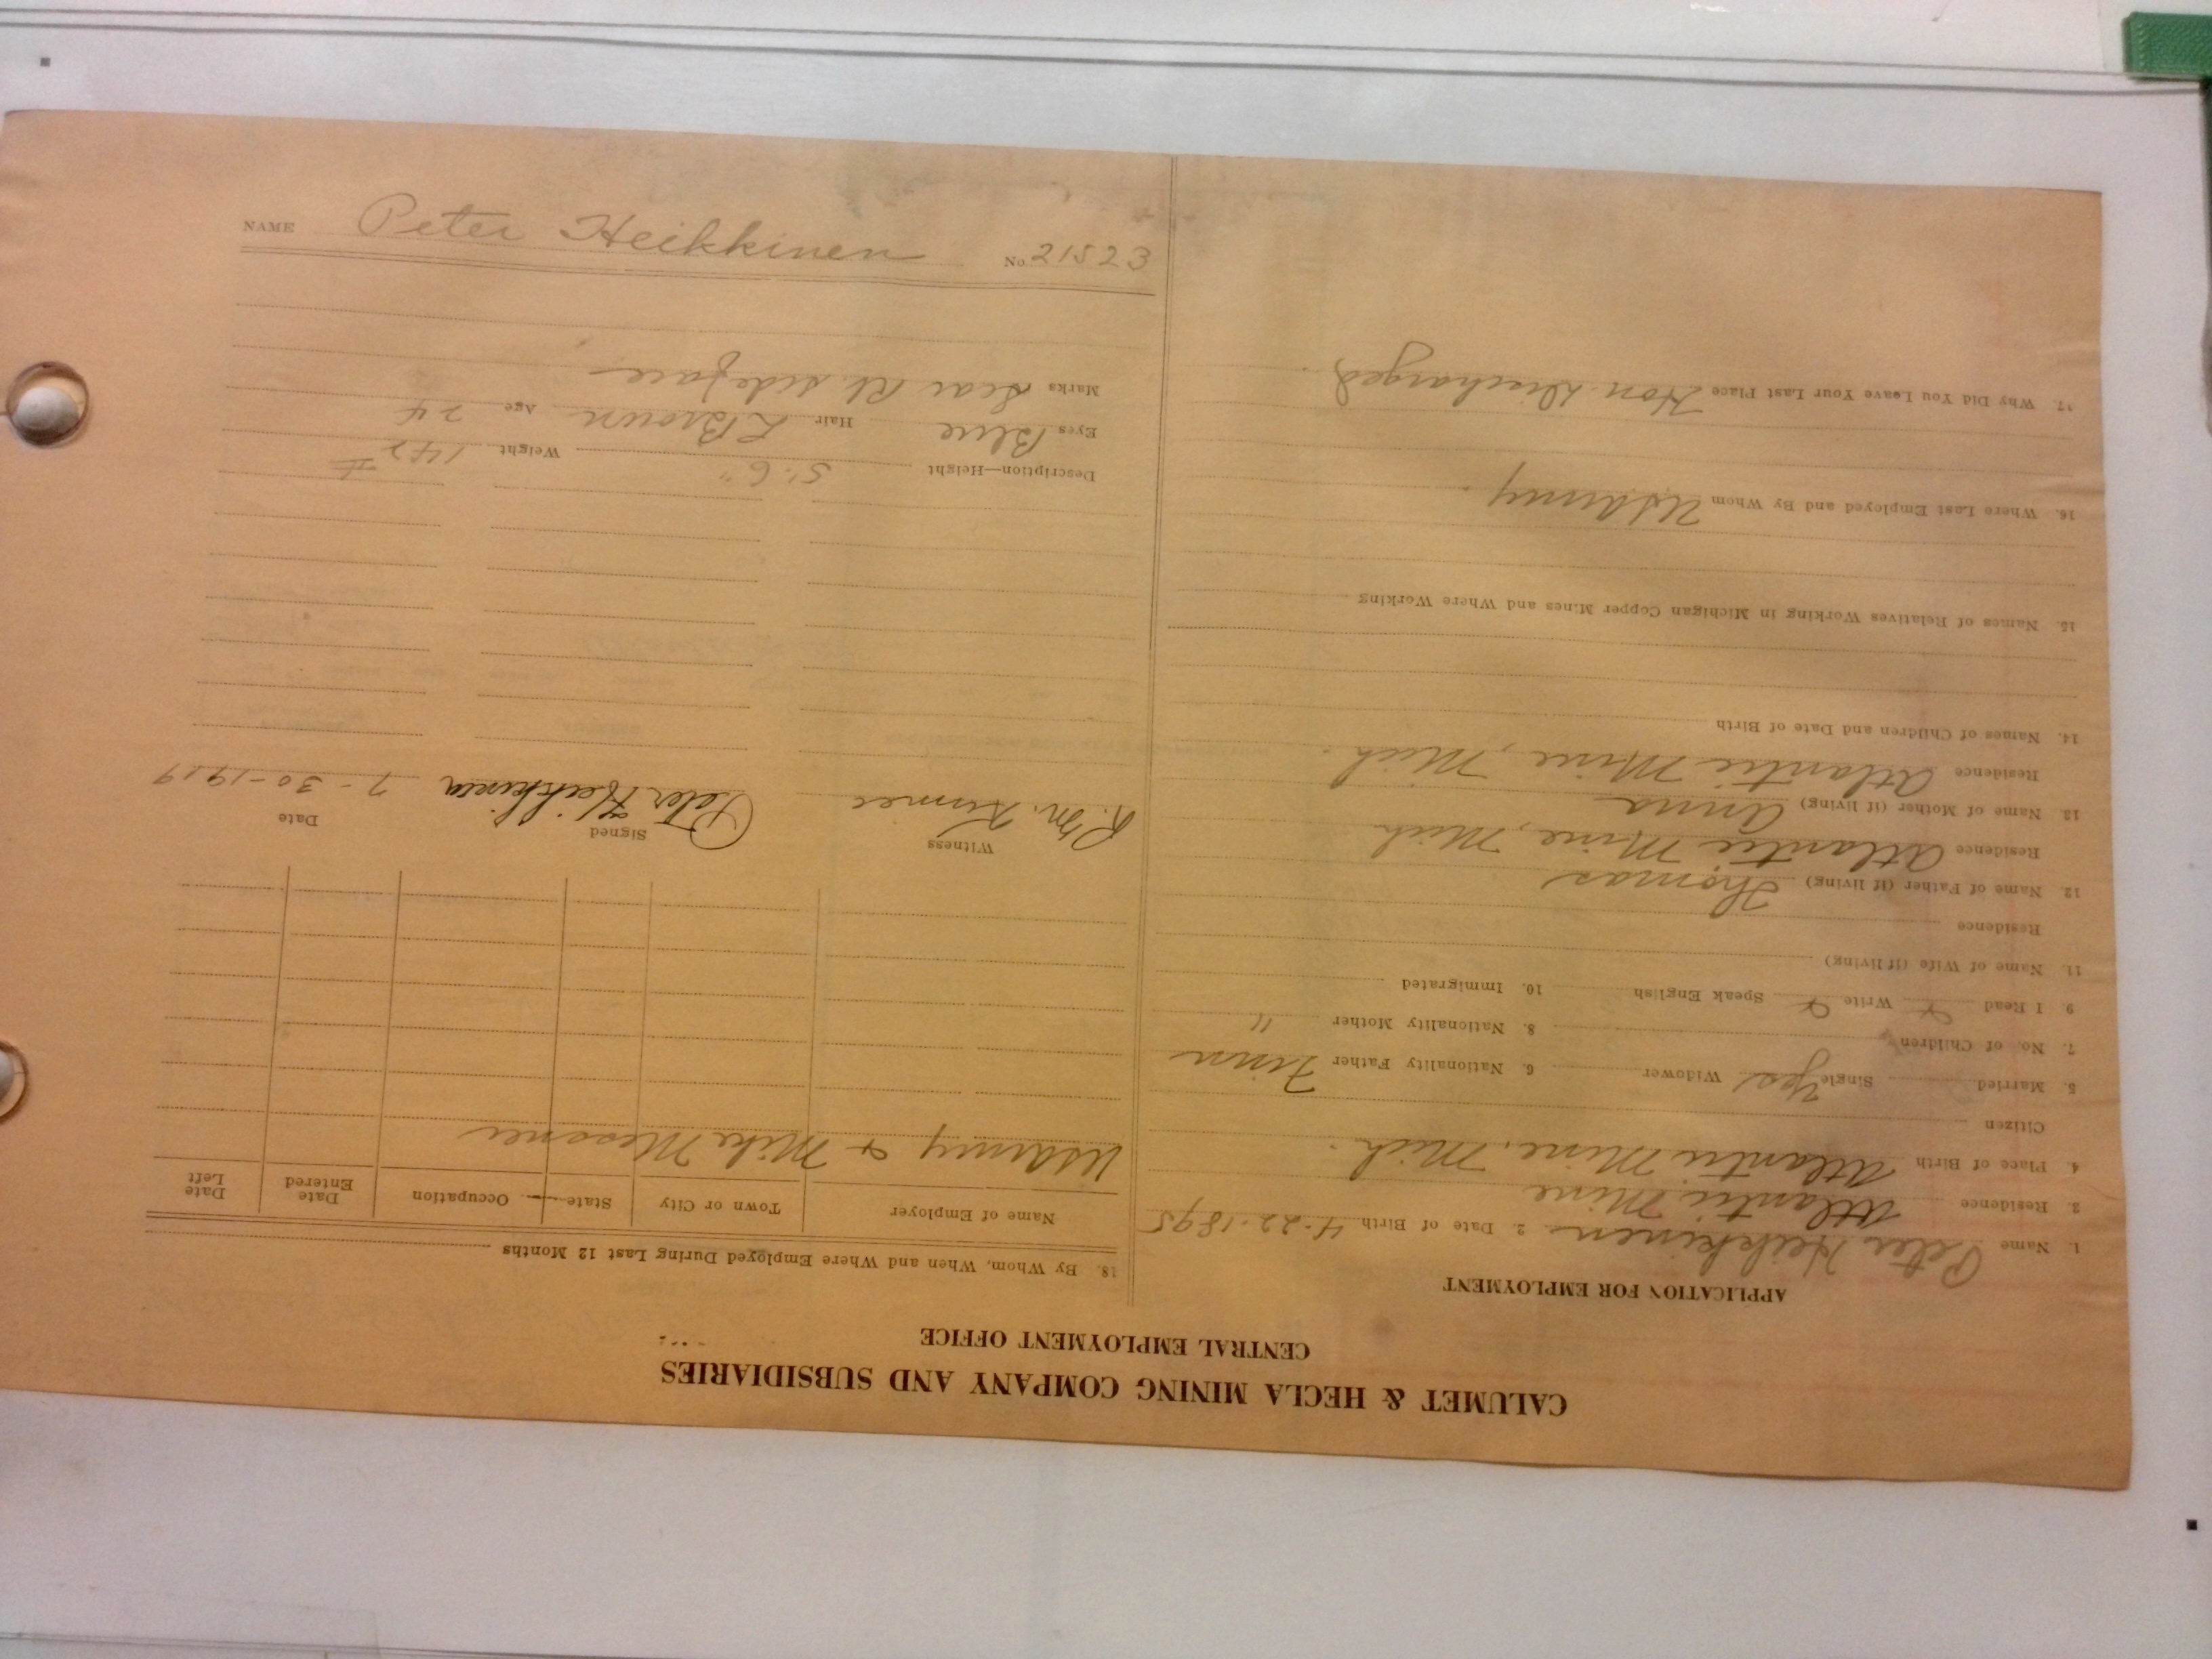 CALUMET & HECLA MINING COMPANY AND SUBSIDIARIES
CENTRAL EMPLOYMENT OFFICE
APPLICATION FOR EMPLOYMENT
1. Name Peter Heikkinen 2. Date of Birth 4-22-1895
3. Residence Atlantic Mine
4. Place of Birth Atlantic Mine, Mich.
Citizen
5. Married Single Yes Widower 6. Nationality Father Finn
7. No. of Children 8. Nationality Mother "
9. I Read Write Speak English 10. Immigrated
11. Name of Wife (if living)
Residence
12. Name of Father (if living) Thomas
Residence Atlantic Mine, Mich
13. Name of Mother (if living) Anna
Residence Atlantic Mine, Mich.
14. Names of Children and Date of Birth
15. Names of Relatives Working in Michigan Copper Mines and Where Working
16. Where Last Employed and By Whom US Army.
17. Why Did You Leave Your Last Place Hon Discharged.
18. By Whom, When and Where Employed During Last 12 Months
Name of Employer Town or City State Occupation Date Entered Date Left
US Army & Mike Messner
Witness Signed Date
R. M. Peter Heikkinen 7-30-1919
Description—Height 5' 6" Weight 142 #
Eyes Blue Hair L Brown Age 24
Marks Scar Rt. side face
NAME Peter Heikkinen No. 21523